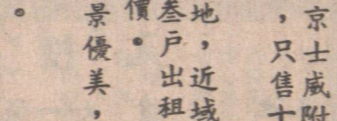 京士威附
，只售十
地，近域
叁戶出租
價。
景優美，
。